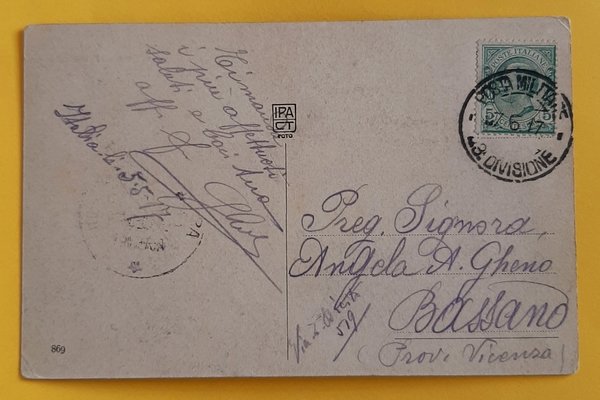 Ti mando
i più affettuosi
saluti e baci tuo
aff.
5-5-17
IPA
CT
FOTO
POSTE ITALIANE
POSTA MILITARE
6.17
DIVISIONE
Preg. Signora
Angela A. Gheno
Bassano
(Prov. Vicenza)
519
869